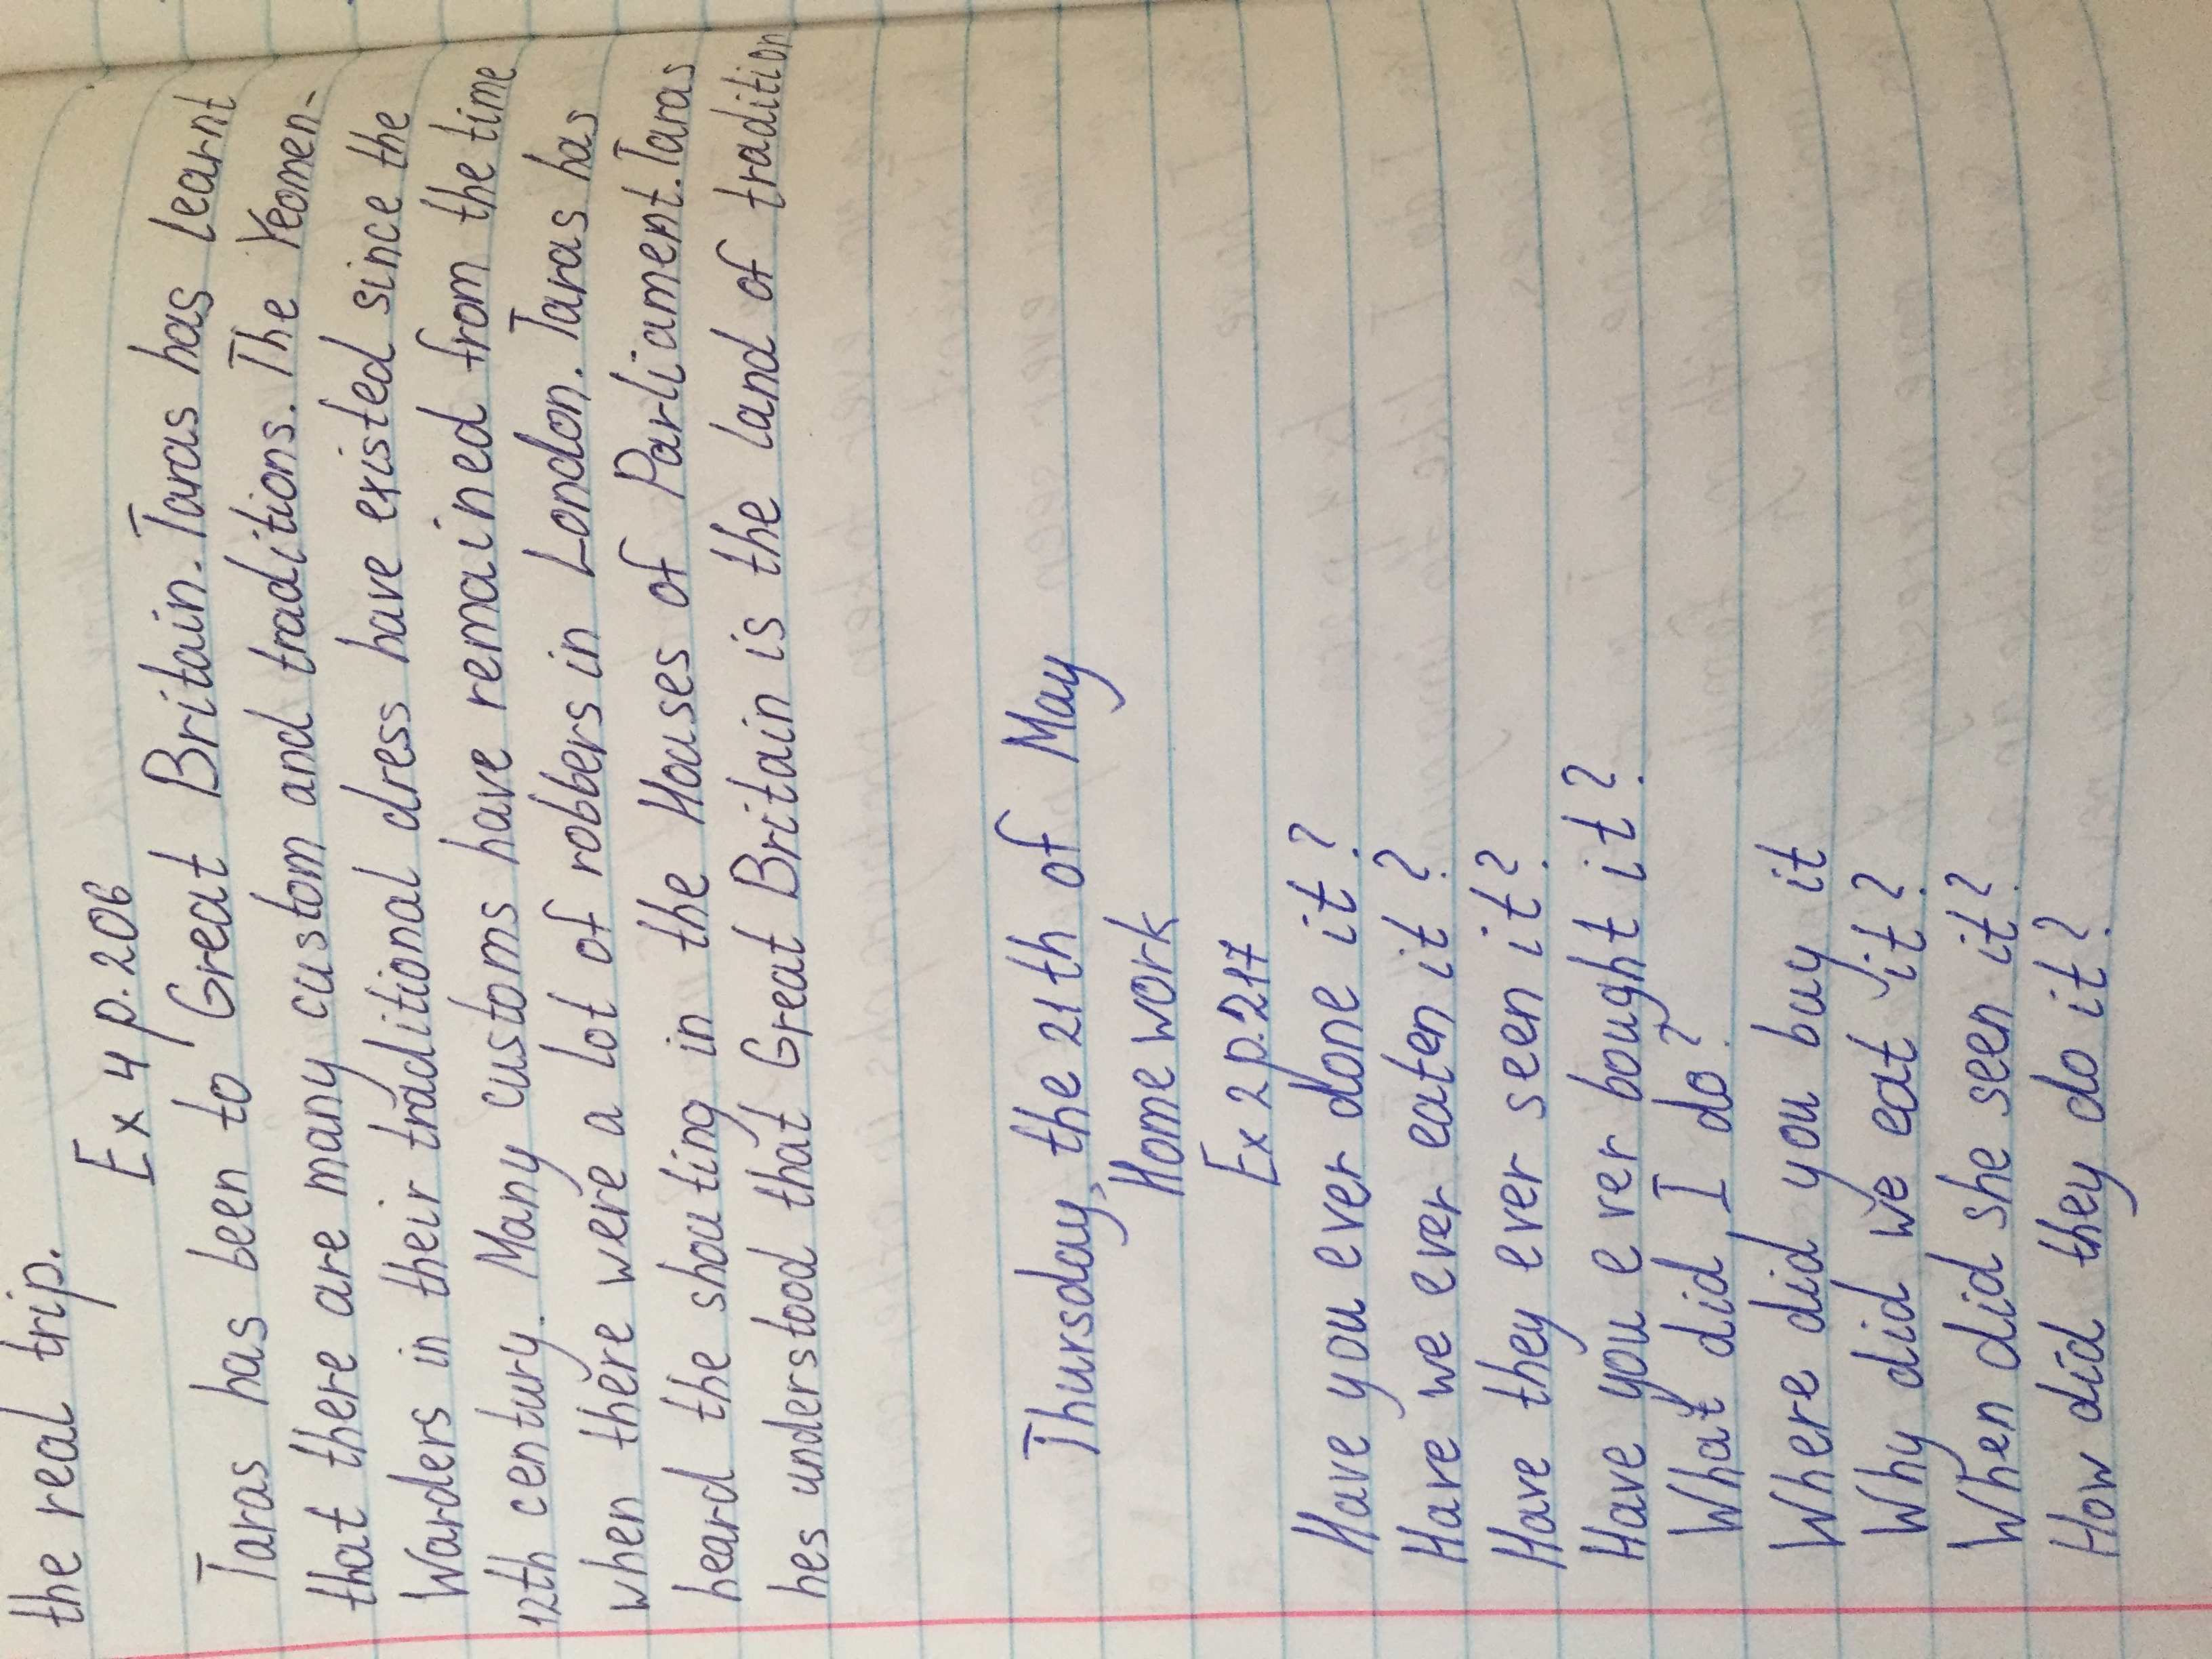 the real trip.
Ex 4 p. 206
Taras has been to Great Britain. Taras has learnt
that there are many custom and traditions. The Yeomen-
Warders in their traditional dress have existed since the
12th century. Many customs have remained from the time
when there were a lot of robbers in London. Taras has
heard the shouting in the Houses of Parliament. Taras
hes understood that Great Britain is the land of tradition
Thursday, the 21th of May
Home work
Ex 2 p. 217
Have you ever done it?
Have we ever eaten it?
Have they ever seen it?
Have you ever bought it?
What did I do?
Where did you buy it
Why did we eat it?
When did she seen it?
How did they do it?